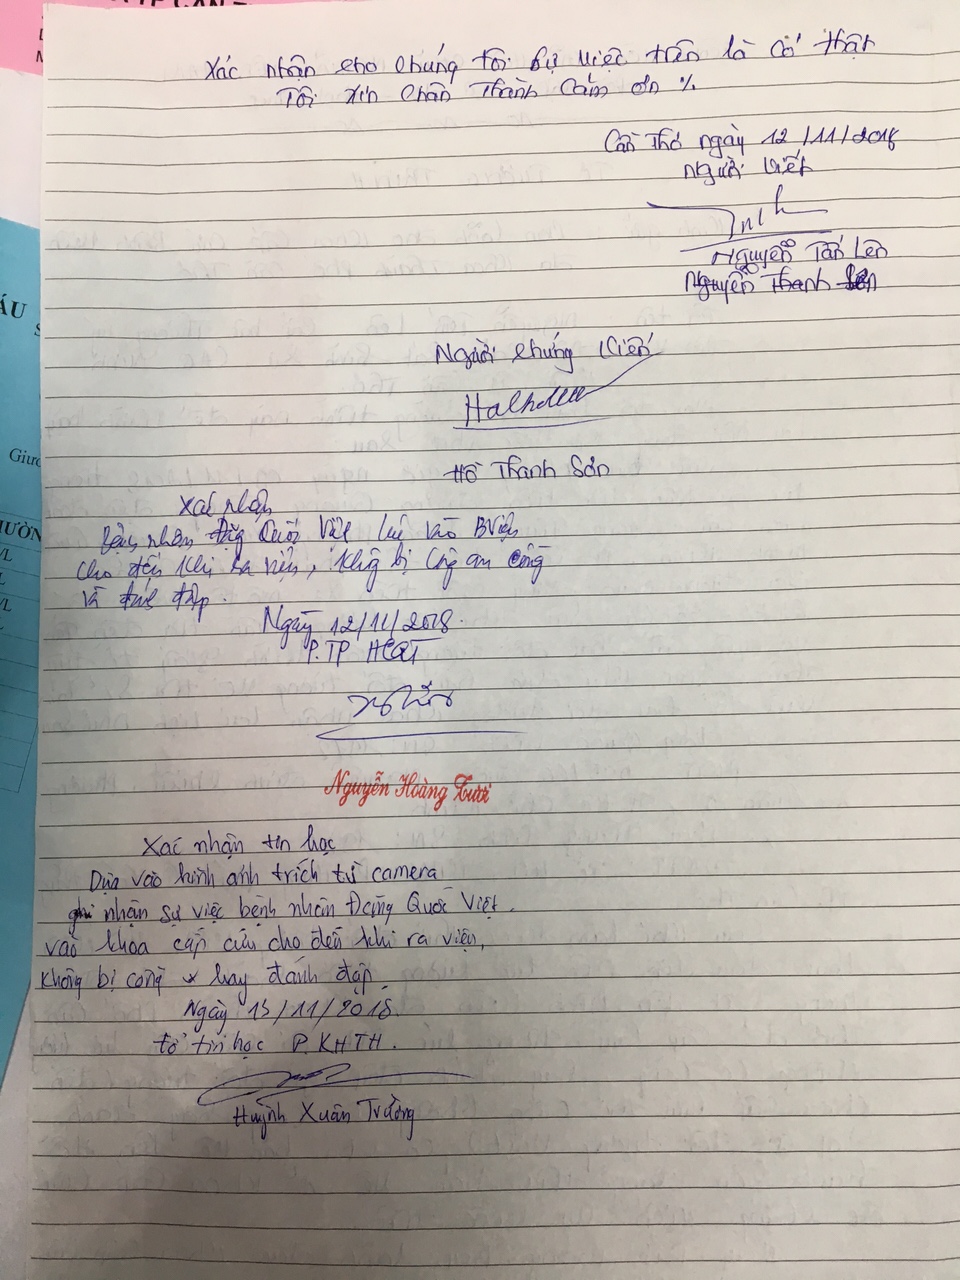 Xác nhận cho chúng tôi sự việc trên là có thật
Tôi xin chân thành cám ơn %
Cần Thơ ngày 12/11/2018
Người viết
Nguyễn Tấn Lên
Nguyễn Thanh
Người chứng kiến
Hồ Thanh Sơn
Xác nhận
Bệnh nhân Đặng Quốc Việt lúc vào BViện
cho đến khi ra viện, không bị công an còng
và đánh đập.
Ngày 12/11/2018.
P.TP HCQT
Nguyễn Hoàng Tươi
Xác nhận tin học
Dựa vào hình ảnh trích từ camera
ghi nhận sự việc bệnh nhân Đặng Quốc Việt.
vào khoa cấp cứu cho đến khi ra viện,
không bị còng hay đánh đập.
Ngày 13/11/2018.
tổ tin học P.KHTH.
Huỳnh Xuân Trường
ÁU
S
Giườ
ƯỜN
VL